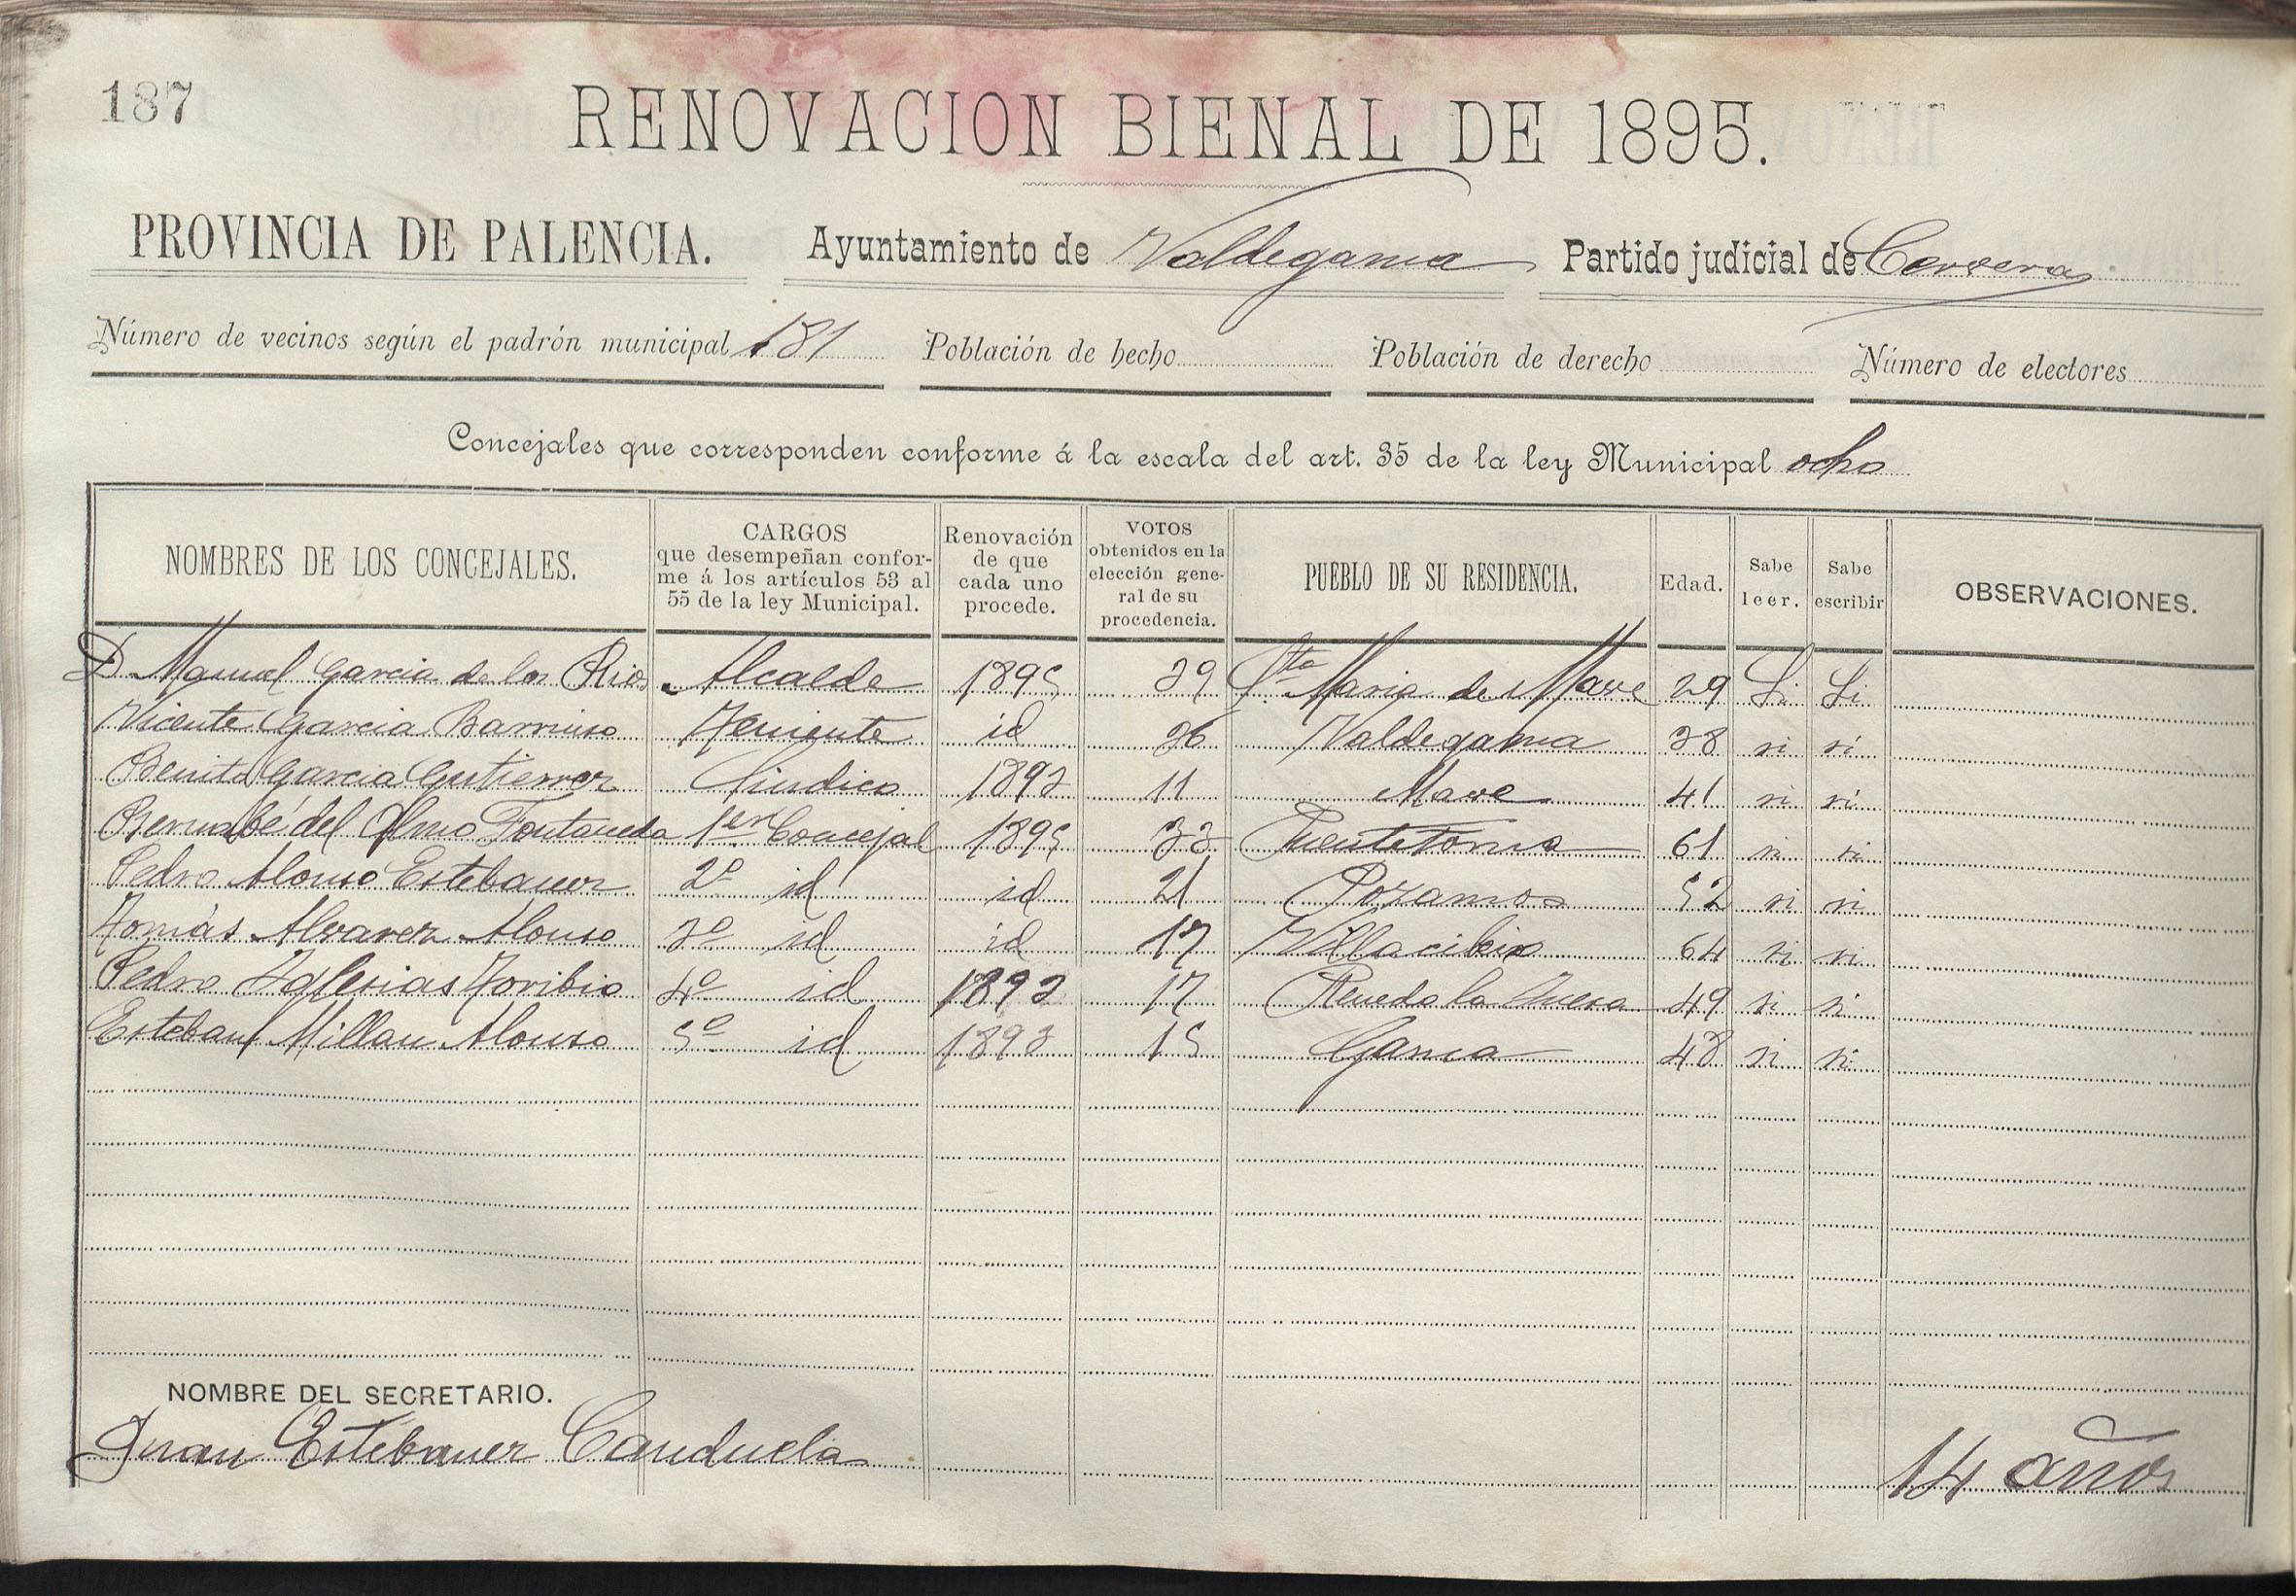 187
RENOVACION BIENAL DE 1895.
PROVINCIA DE PALENCIA. Ayuntamiento de Valdegama Partido judicial de Cervera
Número de vecinos según el padrón municipal 181 Población de hecho Población de derecho Número de electores
Concejales que corresponden conforme á la escala del art. 35 de la ley Municipal ocho
NOMBRES DE LOS CONCEJALES. CARGOS que desempeñan confor- me á los artículos 53 al 55 de la ley Municipal. Renovación de que cada uno procede. VOTOS obtenidos en la elección gene- ral de su procedencia. PUEBLO DE SU RESIDENCIA. Edad. Sabe leer. Sabe escribir OBSERVACIONES.
D. Manuel Garcia de los Rios Alcalde 1895 Sta Maria de Mave 29 Si Si
Vicente Garcia Barriuso Teniente id 26 Valdegama 38 si si
Benito Garcia Gutierrez Sindico 1893 11 Mave 41 si si
Bernabé del Olmo Fontaneda 1er Concejal 1895 33 Puentetoma 61 si si
Pedro Alonso Estebanez 2º id id 21 Pozancos 52 si si
Tomás Alvarez Alonso 3º id id 17 Villacibio 64 si si
Pedro Iglesias Toribio 4º id 1893 17 Renedo la Inera 49 si si
Esteban Millan Alonso 5º id 1893 15 Gama 48 si si
NOMBRE DEL SECRETARIO.
Juan Estebanez Canduela 14 años